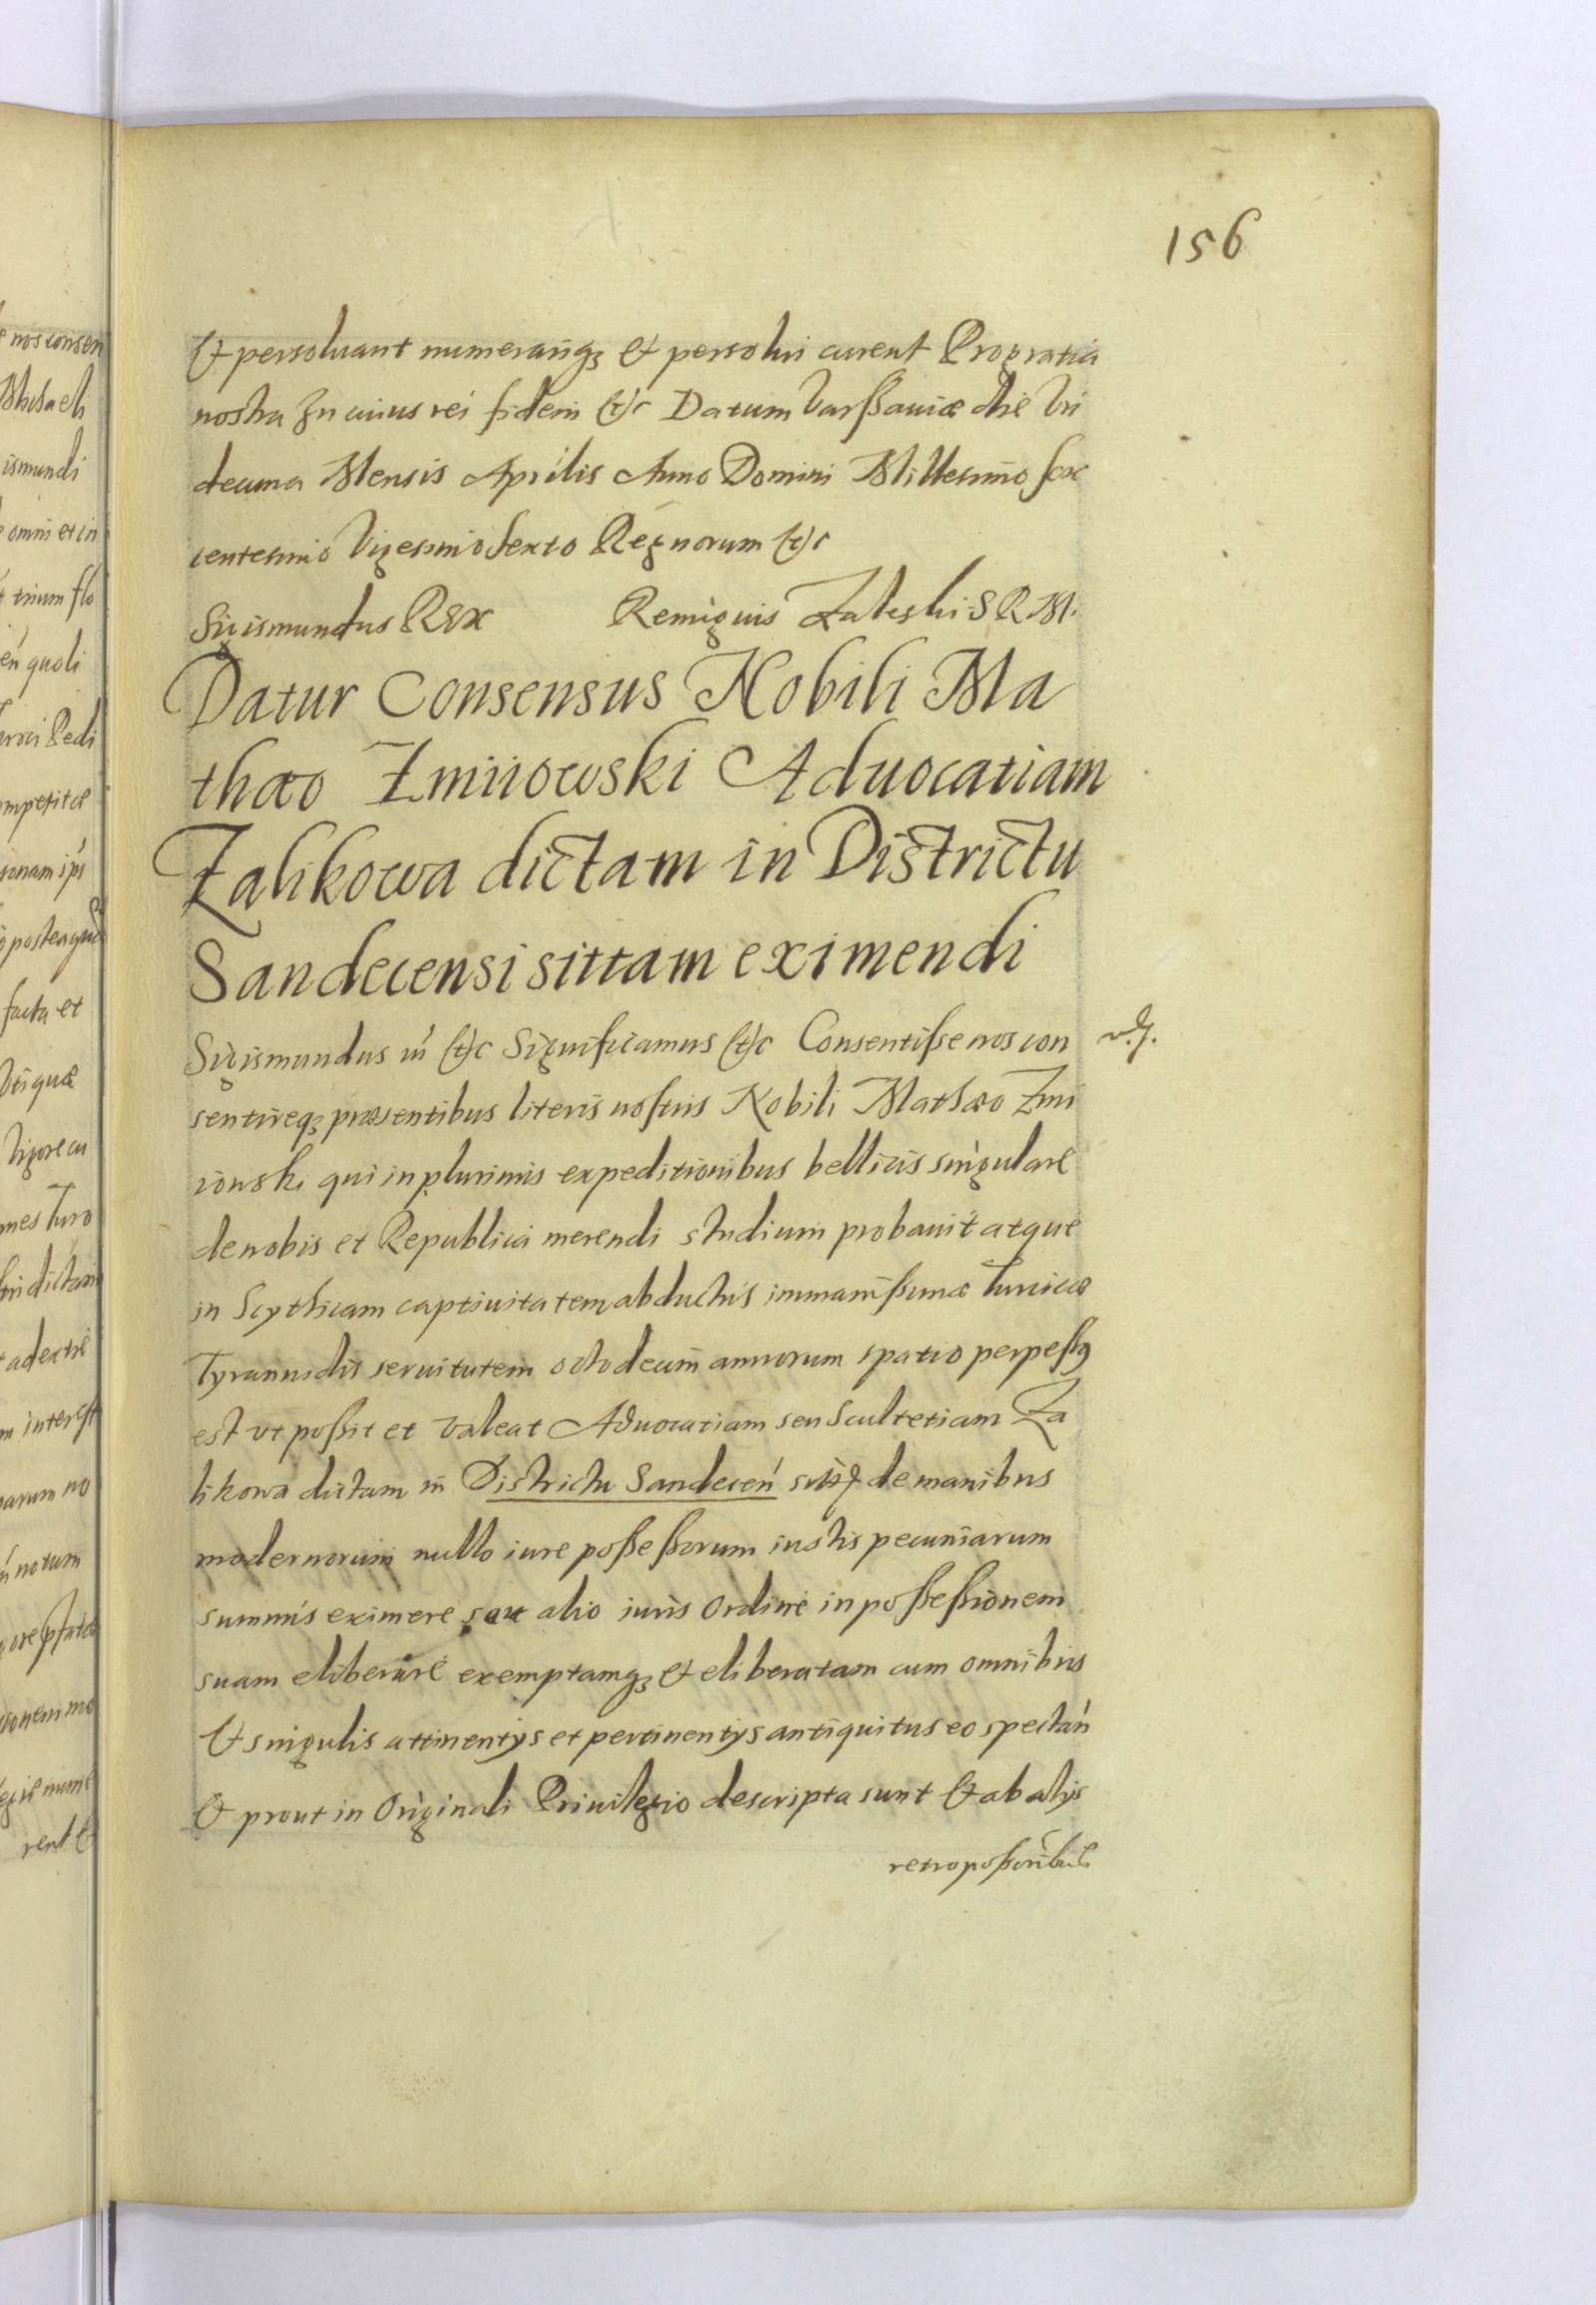 156
Et persoluant numerentq; et persolui curent Pro gratia
nostra In cuius rei fidem (et)c Datum Varssauiæ die Vn
decima Mensis Aprilis Anno Domini Millesimo sex
centesimo Vigesimo Sexto Regnorum (et)c
Sigismundus REx Remigius Zaleski S R M.
Datur Consensus Nobili Ma
thæo Zmiiowski Aduocatiam
Zalikowa dictam in Districtu
Sandecensi sittam eximendi
Sigismundus iii (et)c Significamus (et)c Consentisse nos con
sentireq; præsentibus literis nostris Nobili Mathæo Zmi
iowski qui in plurimis expeditionibus bellicis singulare
de nobis et Republica merendi studium probauit atque
in Scythicam captiuitatem abductus immanissimæ Turcicæ
Tyrannidis seruitutem octodecim annorum spatio perpessus
est vt possit et valeat Aduocatiam seu Scultetiam Za
likowa dictam in Districtu Sandecen de manibus
modernorum nullo iure possessorum iustis pecuniarum
summis eximere seu alio iuris Ordine in possessionem
suam eliberare exemptamq; et eliberatam cum omnibus
Et singulis attinentijs et pertinentijs antiquitus eo spectan
Et prout in Originali Priuilegio descripta sunt Et ab alijs
retroposs​oribus
e nos consen
Michaeli
ismundi
omni et in
trium flo
quoli
Pedi
ompetitæ
sonam ips
posteaquã
facta et
Vtiquæ
Vigore cu
mes Turo
dictam
adextre
m interest
arum no
notum
ionem mo
rent Et